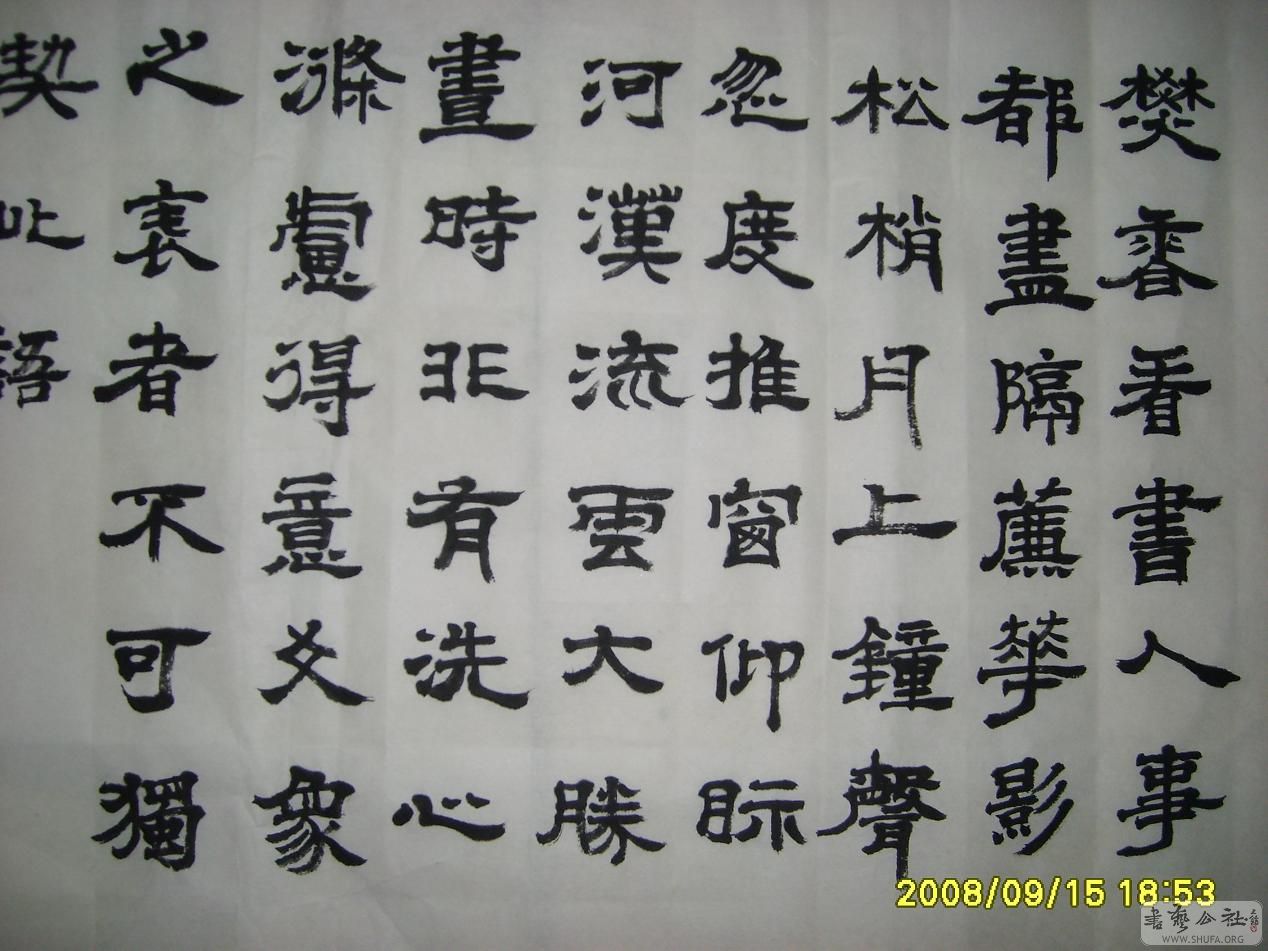 焚香看書人事
都盡隔薕華影
松梢月上鐘聲
忽度推窗仰眎
河漢流雲大勝
晝時非有洗心
滌慮得意爻象
之表者不可獨
契此語
2008/09/15 18:53
書藝公社
WWW.SHUFA.ORG